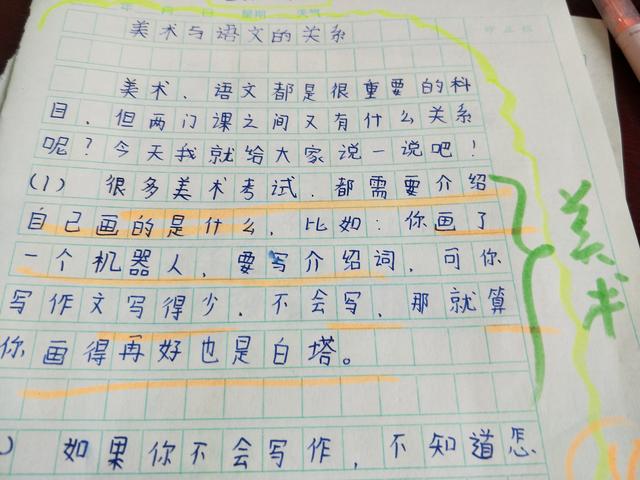 年 月 日 星期 天气
美术与语文的关系
美术、语文都是很重要的科
目，但两门课之间又有什么关系
呢？今天我就给大家说一说吧！
(1) 很多美术考试，都需要介绍
自己画的是什么，比如：你画了
一个机器人，要写介绍词，可你
写作文写得少，不会写，那就算
你画得再好也是白塔。
) 如果你不会写作，不知道怎
美术